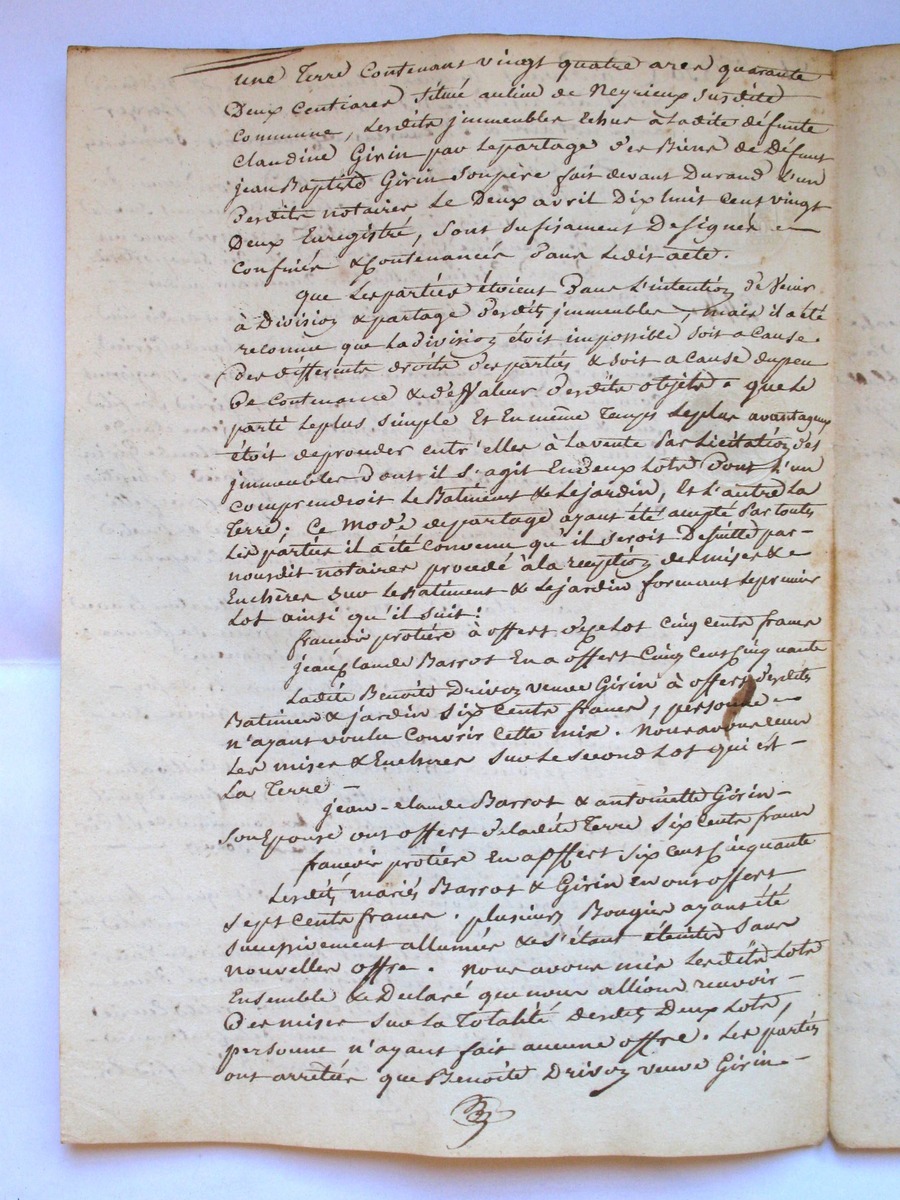 une Terre Contenant vingt quatre ares quarante
Deux Centiares situé au lieu de Neyrieux susdite
Commune, Lesdits jmmeubles Echus à Ladite défunte
Claudine Girin par Le partage des Biens de défunt
jean Baptiste Girin son père fait devant Durand l'un
Desdits notaires Le Deux avril Dix huit Cent vingt
Deux Enregistré, sont sufisament Designés
Confinés & Contenancés Dans Ledit acte.
que Les parties étoient Dans L'intention de Venir
à Division & partage desdits jmmeubles, mais il a été
reconnu que La division étoit impossible soit a Cause
des différents droits des parties & soit a Cause du peu
De Contenance & de Valeur desdits objets. que Le
parti Le plus simple Et En même Temps Le plus avantageux
étoit de procéder entr'elles à La vente par Licitation des
jmmeubles dont il s'agit En deux Lots dont L'un
Comprendroit Le Batiment & Le jardin, Et L'autre La
Terre; Ce Mode de partage ayant été adopté par toutes
Les parties il a été Convenu qu'il seroit De suitte par
nousdit notaires procedé à la reception des mises &
Enchères sur Le Batiment & Le jardin formant Le premier
Lot ainsi qu'il suit:
francois protière à offert de ce Lot Cinq Cents francs
jean Claude Barrot En a offert Cinq Cent Cinquante
Ladite Benoite Drivoz veuve Girin à offert desdits
Batiment & jardin six Cents francs, personne
n'ayant voulu Couvrir Cette mise. Nous avons
Les mises & Enchères sur Le second Lot qui est
La Terre
jean-claude Barrot & antoinette Girin
son Epouse ont offert de Ladite Terre six Cents francs
francois protière En a offert six Cent Cinquante
Lesdits mariés Barrot & Girin en ont offert
sept Cents francs. plusieurs Bougies ayant été
succesivement allumées & s'étant éteintes sans
nouvelles offre. Nous avons mis Lesdits Lots
Ensemble & Declaré que nous allions recevoir
Des mises sur La Totalité desdits Deux Lots,
personne n'ayant fait aucune offre. Les parties
ont arretées que Benoite Drivoz veuve Girin